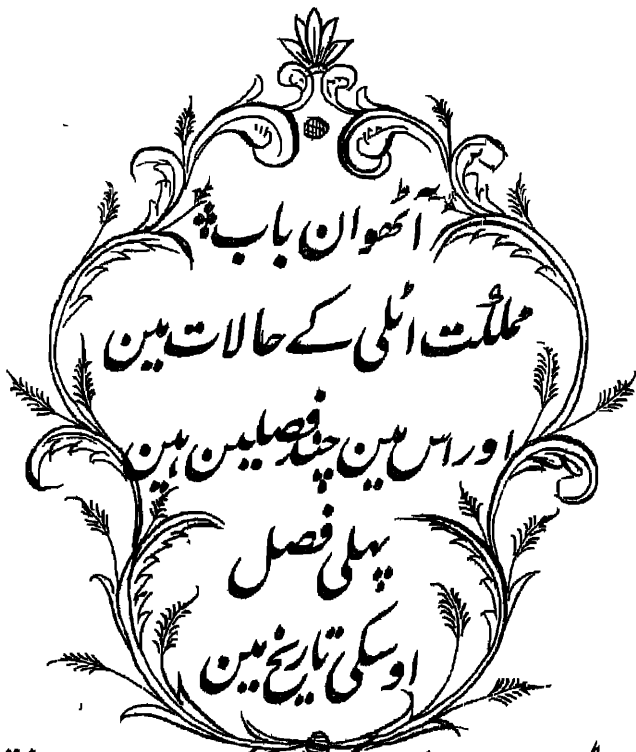 آٹھوان باب
مملکت اٹلی کے حالات مین
اور اس مین چند فصلین ہین
پہلی فصل
اوسکی تاریخ مین